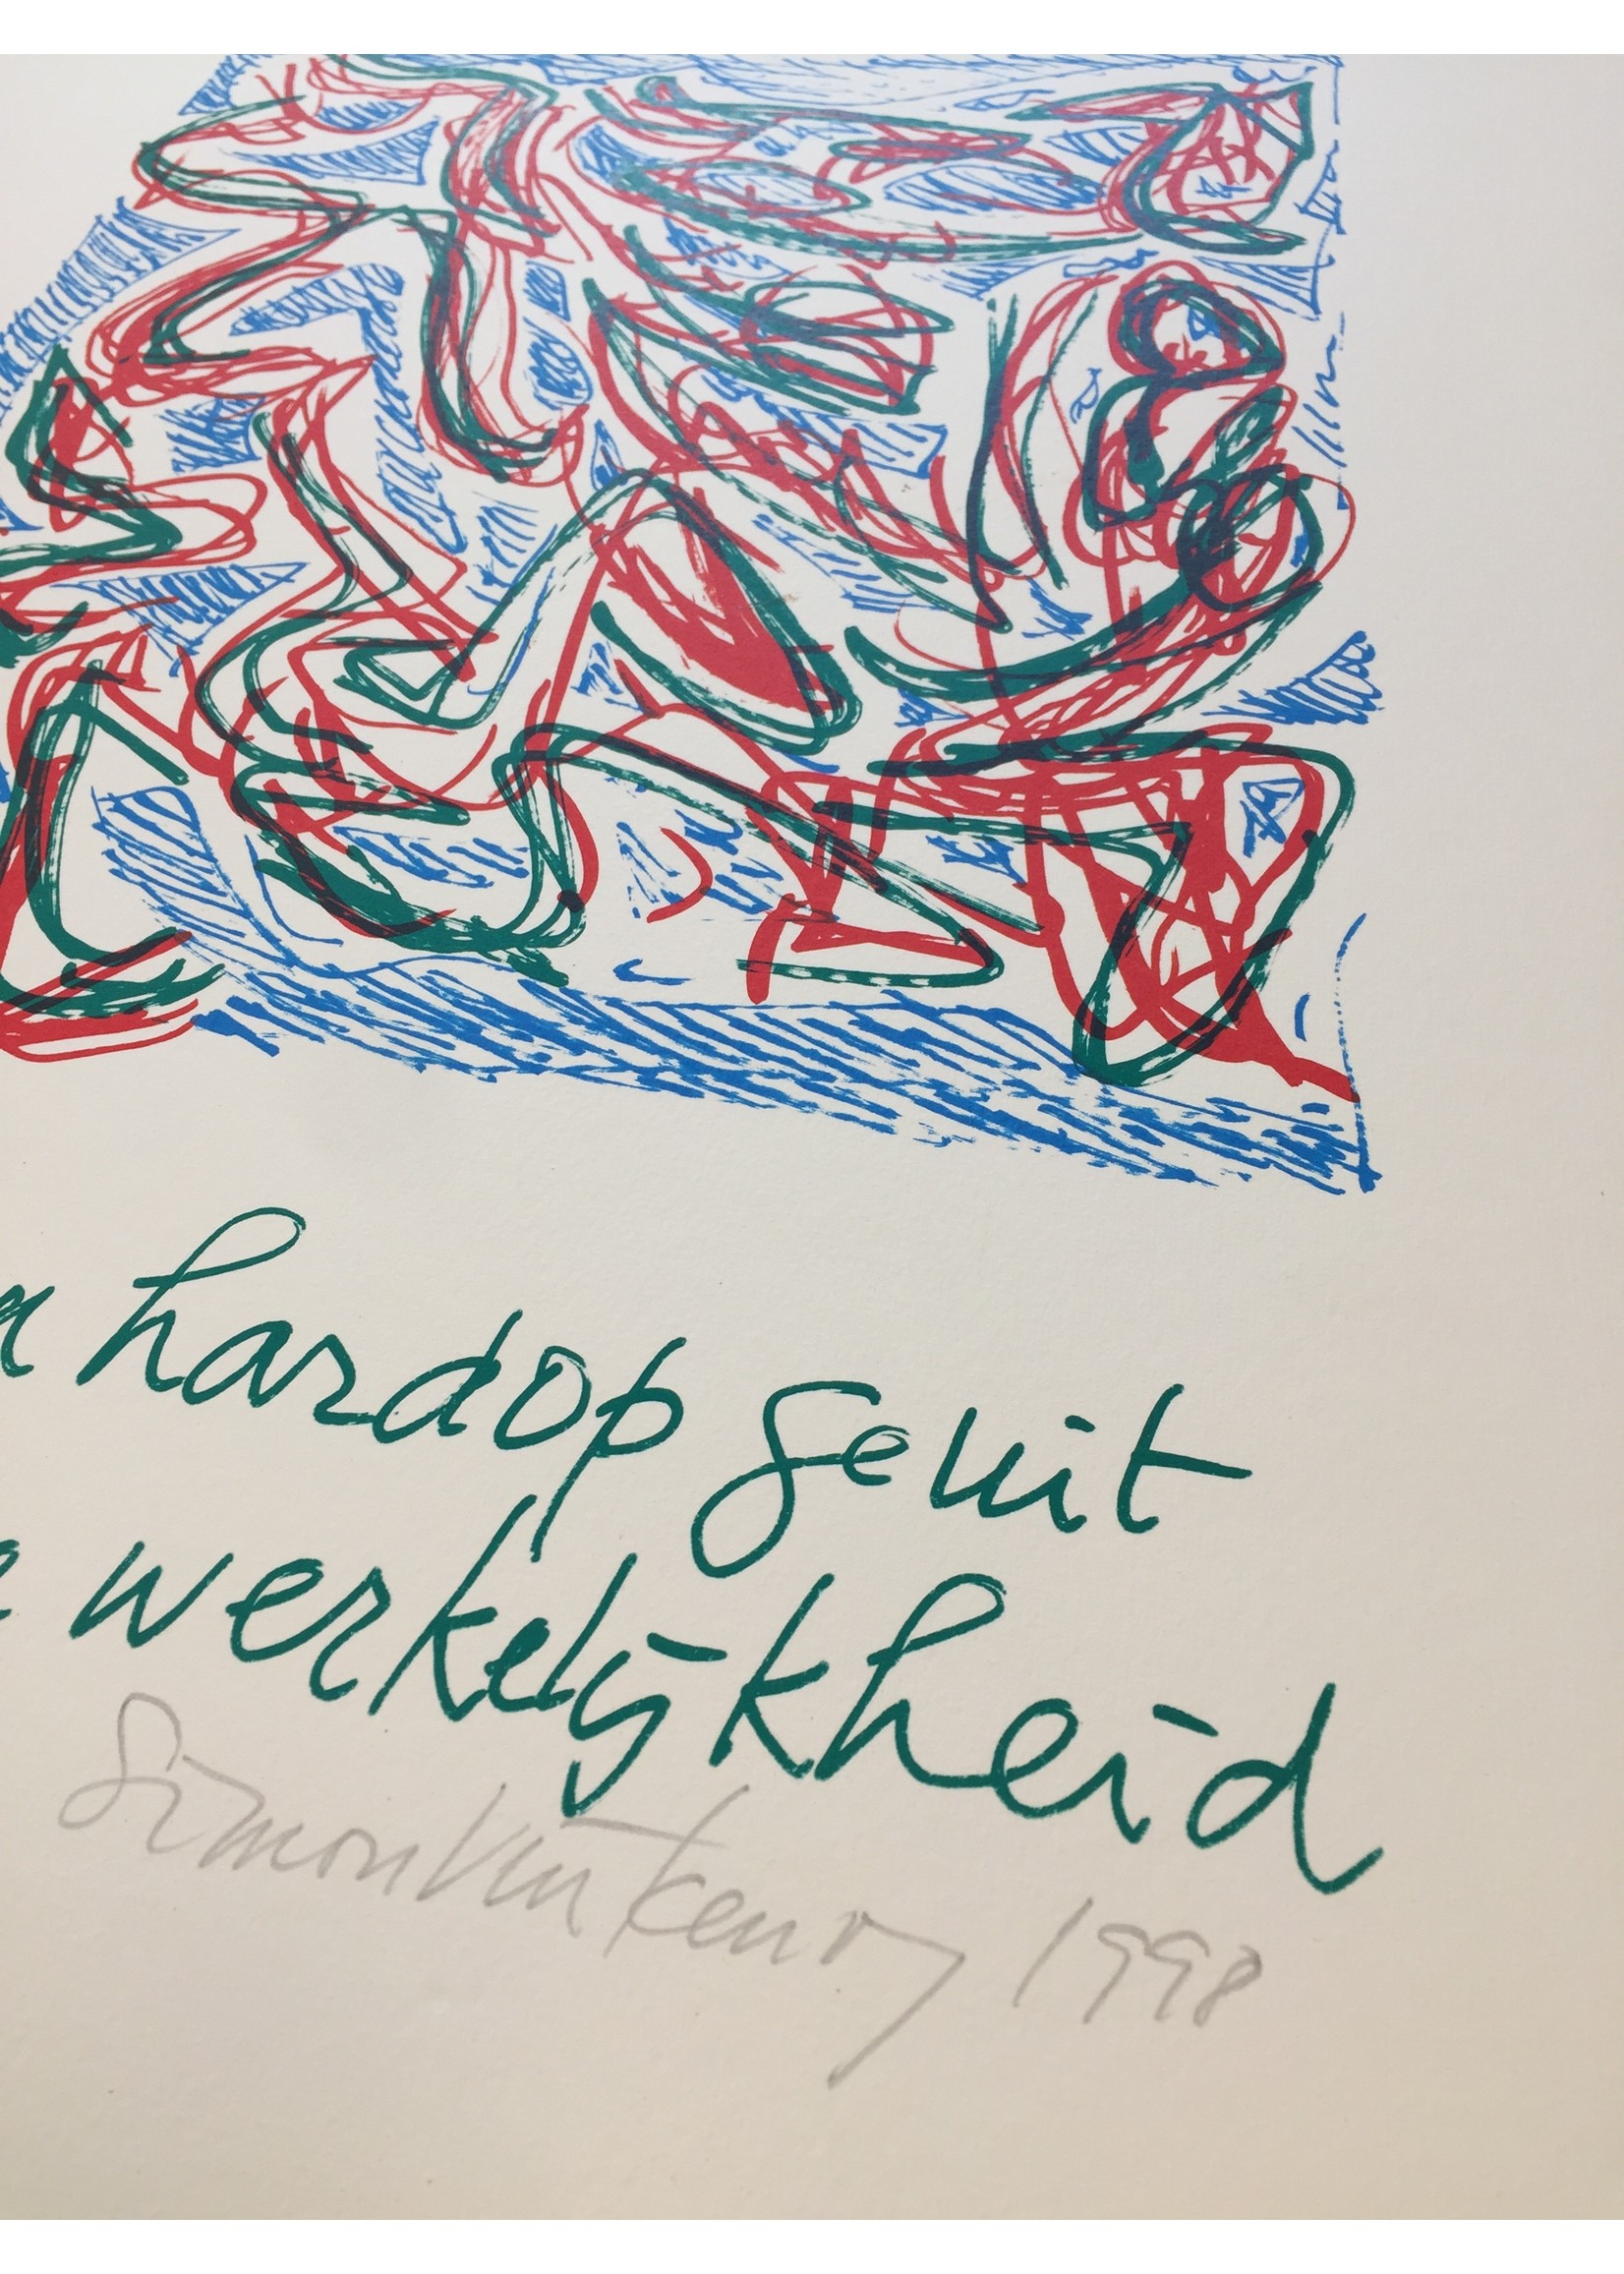 hardop geuit
werkelijkheid
Simon Vinkenoog 1998